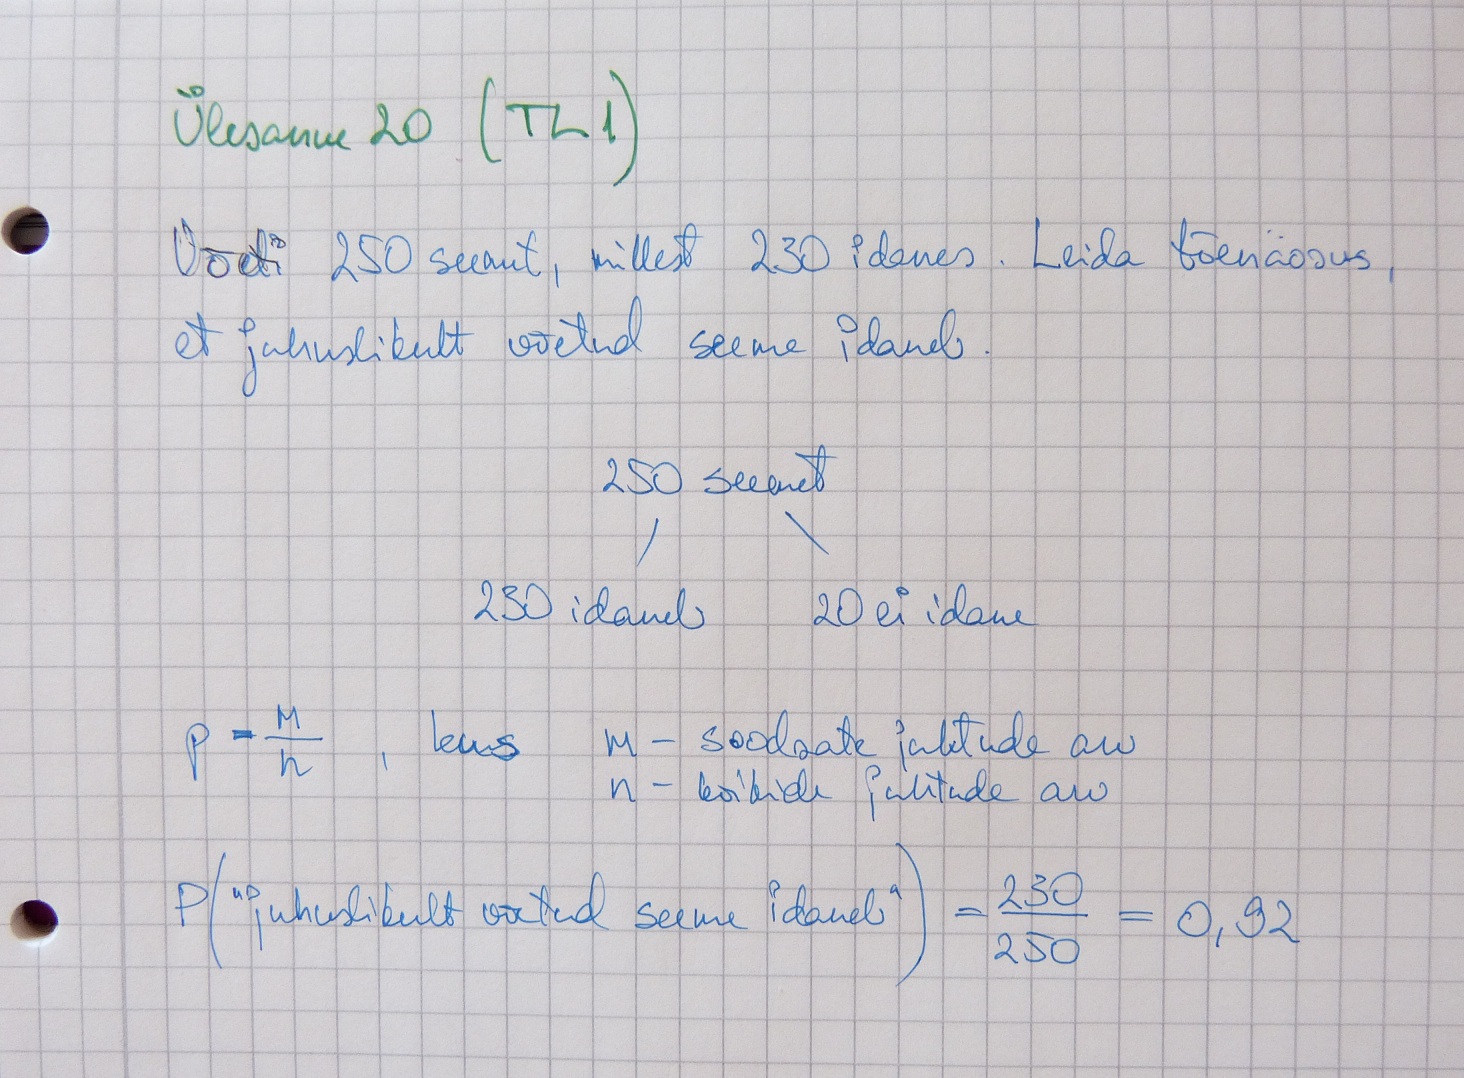 Ülesanne 20 (TL1)
Võeti 250 seemet, millest 230 idanes. Leida tõenäosus,
et juhuslikult võetud seeme idaneb.
250 seemet
230 idaneb 20 ei idane
p = m/n, kus m - soodsate juhtude arv
n - kõikide juhtude arv
P("juhuslikult võetud seeme idaneb") = 230/250 = 0,92